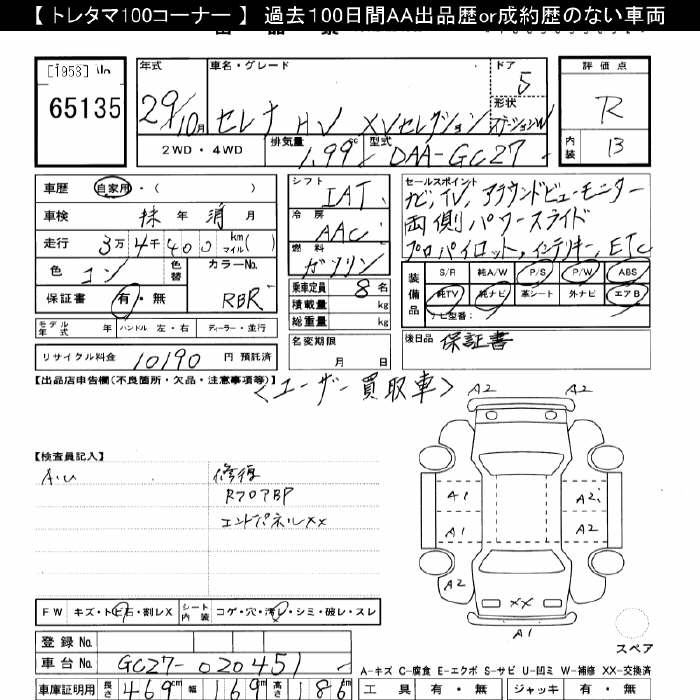 【 トレタマ100コーナー 】 過去100日間AA出品歴or成約歴のない車両
[1953] No
65135
年式
29/10月
車名・グレード
セレナ HV XVセレクション
ドア
5
形状
ステーションW
評価点
R
内装
B
2WD・4WD
排気量
1.99 cc
型式
DAA-GC27
車歴 自家用・( )
車検 抹 年 消 月
走行 3万 4千 400 km マイル ( )
色 コン 色替
カラーNo.
RBR
保証書 有・無
モデル年式 年 ハンドル 左・右 ディーラー・並行
リサイクル料金 10190 円 預託済
シフト
IAT
冷房
AAC
燃料
ガソリン
乗車定員 8 名
積載量 kg
総重量 kg
名変期限
月 日
セールスポイント
ナビ,TV,アラウンドビューモニター
両側パワースライド
プロパイロット,インテリキー,ETC
装備品
S/R 純A/W P/S P/W ABS
純TV 純ナビ 革シート 外ナビ エアB
ナビ型番:
後日品 保証書
【出品店申告欄(不良箇所・欠品・注意事項等)】
<ユーザー買取車>
【検査員記入】
A.U
修復
RフロアBP
エンドパネルXX
A2
A2
A1
A2
A1
A2
A2
XX
A1
スペア
FW キズ・トビ石・割レX シート内装 コゲ・穴・汚レ・シミ・破レ・スレ
登録 No.
車台 No. GC27-020451
車庫証明用 長さ 469 cm 幅 169 cm 高さ 186 cm
A-キズ C-腐食 E-エクボ S-サビ U-凹ミ W-補修 XX-交換済
工具 有・無 ジャッキ 有・無